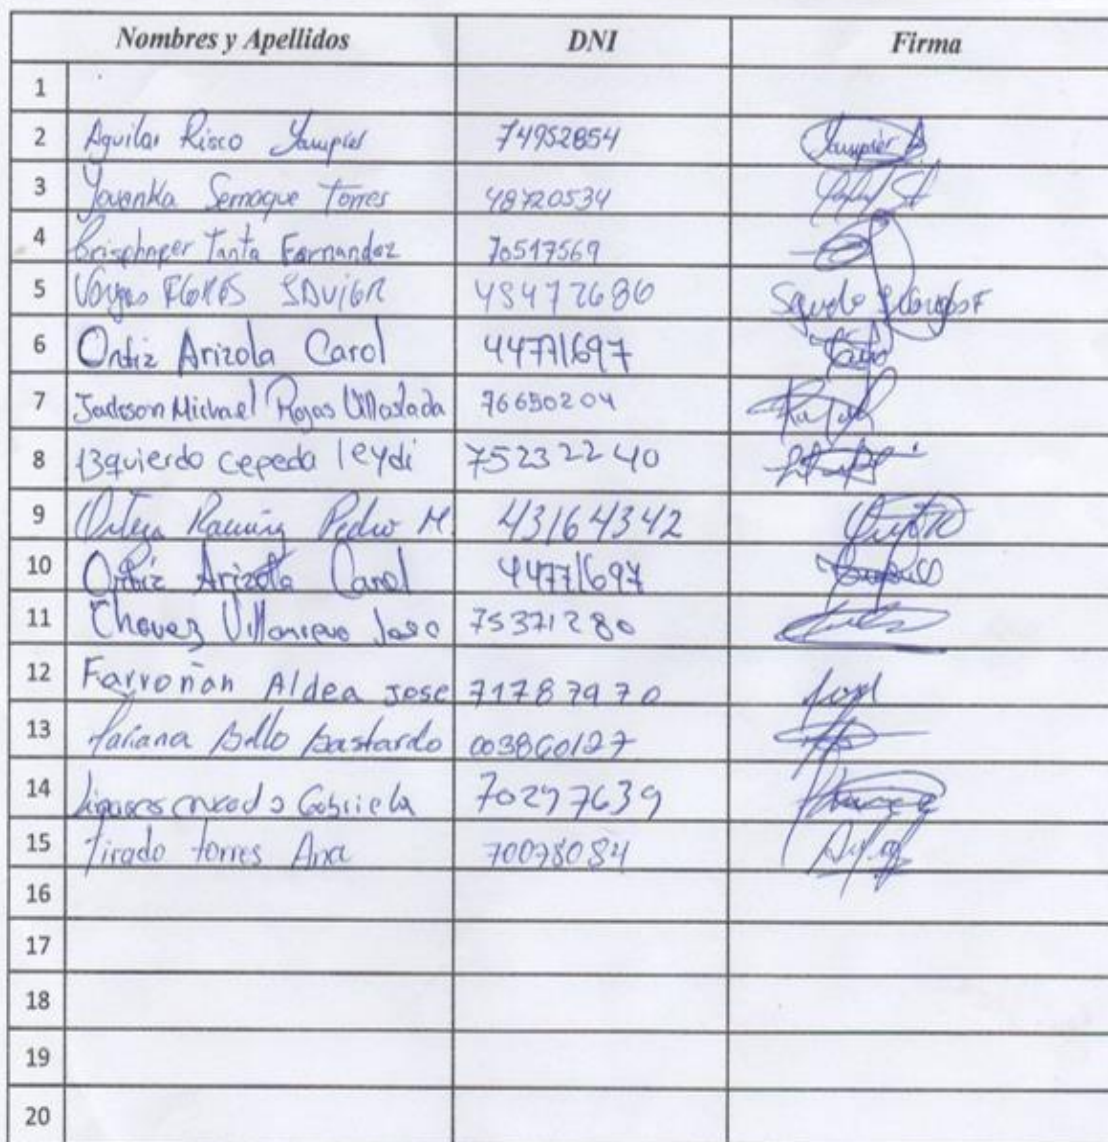 Nombres y Apellidos DNI Firma
1
2 Aguilar Risco Yampier 74952854 Yampier A
3 Yovanka Semaque Torres 48720534
4 Tanta Fernandez 70517569
5 Vargas FLORES 45472686
6 Ortiz Arizola Carol 44771697
7 Jackson Michael Rojas Villoslada 76650204
8 Izquierdo cepeda leydi 75232240
9 Ortega Ramirez Pedro M. 43164342
10 Ortiz Arizola Carol 44771697
11 Chavez Villanueva 75371280
12 Farroñan Aldea Jose 71787970
13 Mariana Bello Bastardo 003860127
14 Gabriela 70297639
15 Tirado torres Ana 70078084
16
17
18
19
20